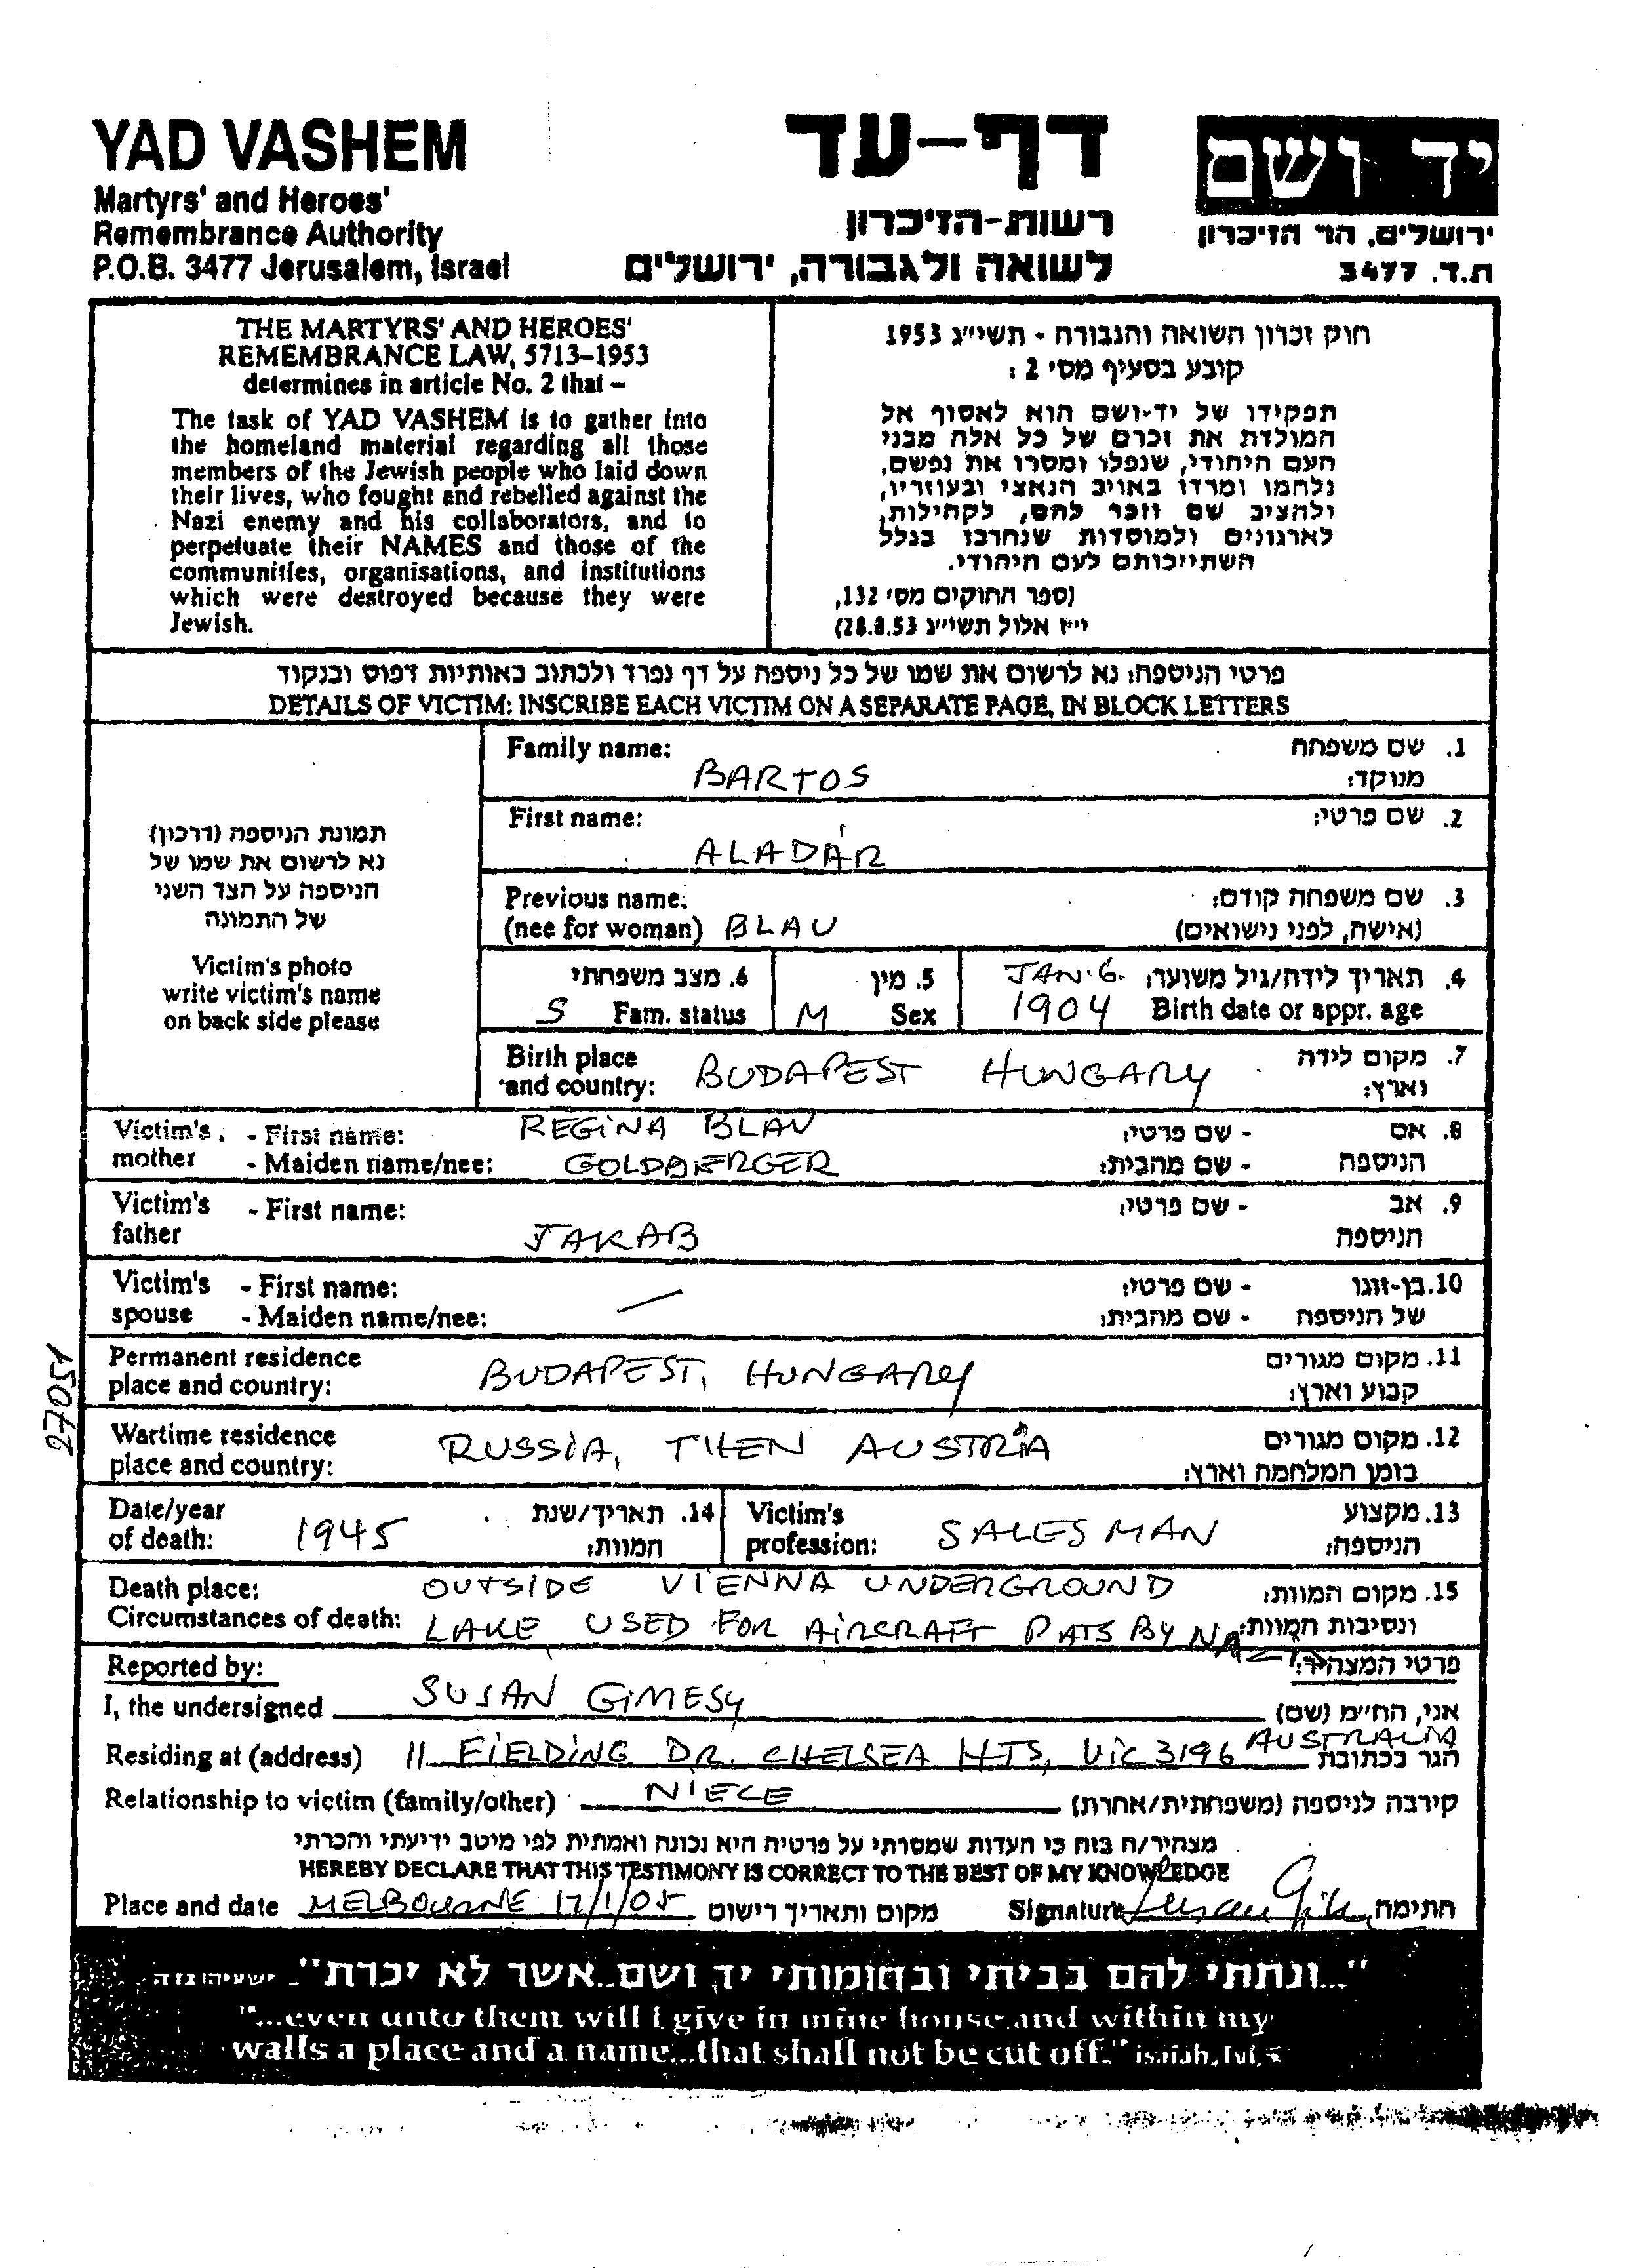 YAD VASHEM
Martyrs' and Heroes'
Remembrance Authority
P.O.B. 3477 Jerusalem, Israel
דף-עד
רשות-הזיכרון
לשואה ולגבורה, ירושלים
יד ושם
ירושלים, הר הזיכרון
ת.ד. 3477
THE MARTYRS' AND HEROES'
REMEMBRANCE LAW, 5713–1953
determines in article No. 2 that –
The task of YAD VASHEM is to gather into
the homeland material regarding all those
members of the Jewish people who laid down
their lives, who fought and rebelled against the
Nazi enemy and his collaborators, and to
perpetuate their NAMES and those of the
communities, organisations, and institutions
which were destroyed because they were
Jewish.
חוק זכרון השואה והגבורה - תשי״ג 1953
קובע בסעיף מס׳ 2 :
תפקידו של יד-ושם הוא לאסוף אל
המולדת את זכרם של כל אלה מבני
העם היהודי, שנפלו ומסרו את נפשם,
נלחמו ומרדו באויב הנאצי ובעוזריו,
ולהציב שם וזכר להם, לקהילות,
לארגונים ולמוסדות שנחרבו בגלל
השתייכותם לעם היהודי.
(ספר החוקים מס׳ 132,
י״ז אלול תשי״ג 28.8.53)
פרטי הניספה: נא לרשום את שמו של כל ניספה על דף נפרד ולכתוב באותיות דפוס ובנקוד
DETAILS OF VICTIM: INSCRIBE EACH VICTIM ON A SEPARATE PAGE, IN BLOCK LETTERS
תמונת הניספה (דרכון)
נא לרשום את שמו של
הניספה על הצד השני
של התמונה
Victim's photo
write victim's name
on back side please
Family name: 1. שם משפחה
BARTOS מנוקד:
First name: 2. שם פרטי:
ALADÁR
Previous name: 3. שם משפחה קודם:
(nee for woman) BLAU (אישה, לפני נישואים)
6. מצב משפחתי 5. מין JAN. 6. 4. תאריך לידה/גיל משוער:
S Fam. status M Sex 1904 Birth date or appr. age
Birth place 7. מקום לידה
and country: BUDAPEST HUNGARY וארץ:
Victim's - First name: REGINA BLAU - שם פרטי: 8. אם
mother - Maiden name/nee: GOLDBERGER - שם מהבית: הניספה
Victim's - First name: - שם פרטי: 9. אב
father JAKAB הניספה
Victim's - First name: — - שם פרטי: 10. בן-זוגו
spouse - Maiden name/nee: - שם מהבית: של הניספה
27051
Permanent residence 11. מקום מגורים
place and country: BUDAPEST, HUNGARY קבוע וארץ:
Wartime residence 12. מקום מגורים
place and country: RUSSIA, THEN AUSTRIA בזמן המלחמה וארץ:
Date/year 14. תאריך/שנת Victim's 13. מקצוע
of death: 1945 המוות: profession: SALESMAN הניספה:
Death place: OUTSIDE VIENNA UNDERGROUND 15. מקום המוות:
Circumstances of death: LAKE USED FOR AIRCRAFT PATS BY NAZIS ונסיבות המוות:
Reported by: פרטי המצהיר:
I, the undersigned SUSAN GIMESY אני, הח״מ (שם)
Residing at (address) 11 FIELDING DR. CHELSEA HTS, VIC 3196 AUSTRALIA הגר בכתובת
Relationship to victim (family/other) NIECE קירבה לניספה (משפחתית/אחרת)
מצהיר/ה בזה כי העדות שמסרתי על פרטיה היא נכונה ואמתית לפי מיטב ידיעתי והכרתי
HEREBY DECLARE THAT THIS TESTIMONY IS CORRECT TO THE BEST OF MY KNOWLEDGE
Place and date MELBOURNE 17/1/05 מקום ותאריך רישום Signature חתימה
"...ונתתי להם בביתי ובחומותי יד ושם..אשר לא יכרת". ישעיהו נו ה
"...even unto them will I give in mine house and within my
walls a place and a name...that shall not be cut off." isaiah, lvi, 5